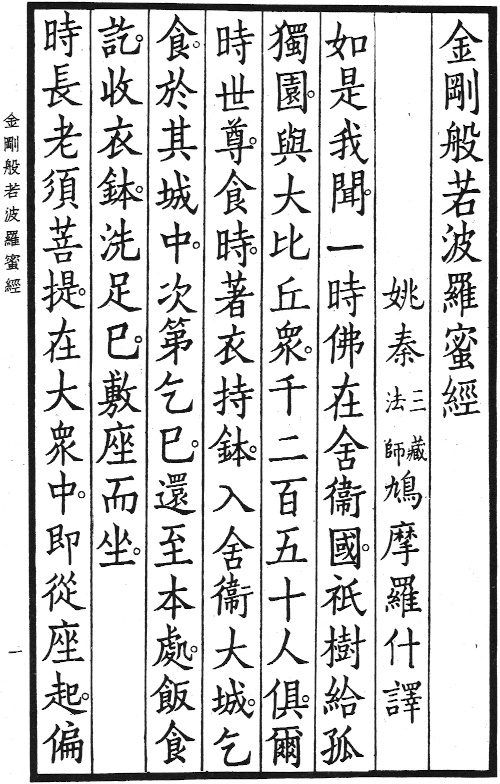 金剛般若波羅蜜經
姚秦三藏法師鳩摩羅什譯
如是我聞。一時佛在舍衞國。祇樹給孤
獨園。與大比丘衆。千二百五十人俱。爾
時世尊。食時。著衣持鉢。入舍衞大城。乞
食。於其城中。次第乞已。還至本處。飯食
訖。收衣鉢。洗足已。敷座而坐。
時長老須菩提。在大衆中。即從座起。偏
金剛般若波羅蜜經
一